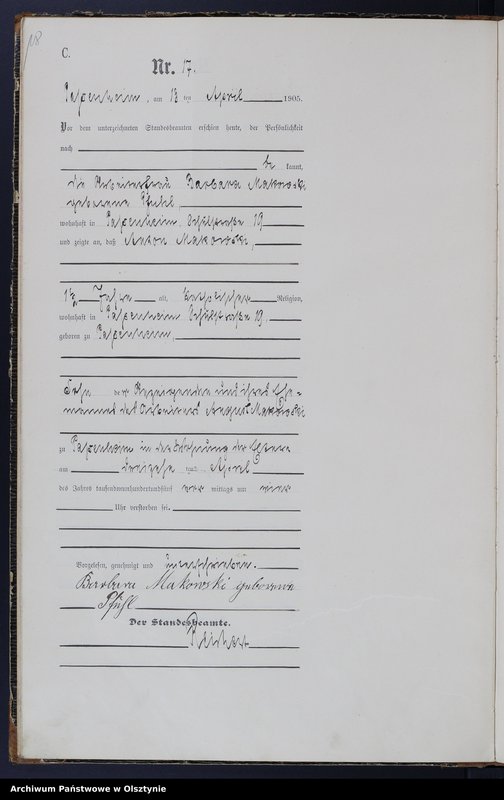 C.
Nr. 17.
am 13 ten April 1905.
Vor dem unterzeichneten Standesbeamten erschien heute, der Persönlichkeit
nach
be kannt,
die Arbeiterfrau Barbara Makowski
geborene Pfuhl,
wohnhaft in Schulstraße 19
und zeigte an, daß Anton Makowski,
1½ Jahre alt, katholischer Religion,
wohnhaft in Schulstraße 19,
geboren zu
Sohn der Anzeigenden und ihres Ehe-
mannes des Arbeiters August Makowski
zu in der Wohnung der Eltern
am dreizehn ten April
des Jahres tausendneunhundertundfünf vor mittags um
Uhr verstorben sei.
Vorgelesen, genehmigt und unterschrieben.
Barbara Makowski geborene
Pfuhl
Der Standesbeamte.
Archiwum Państwowe w Olsztynie